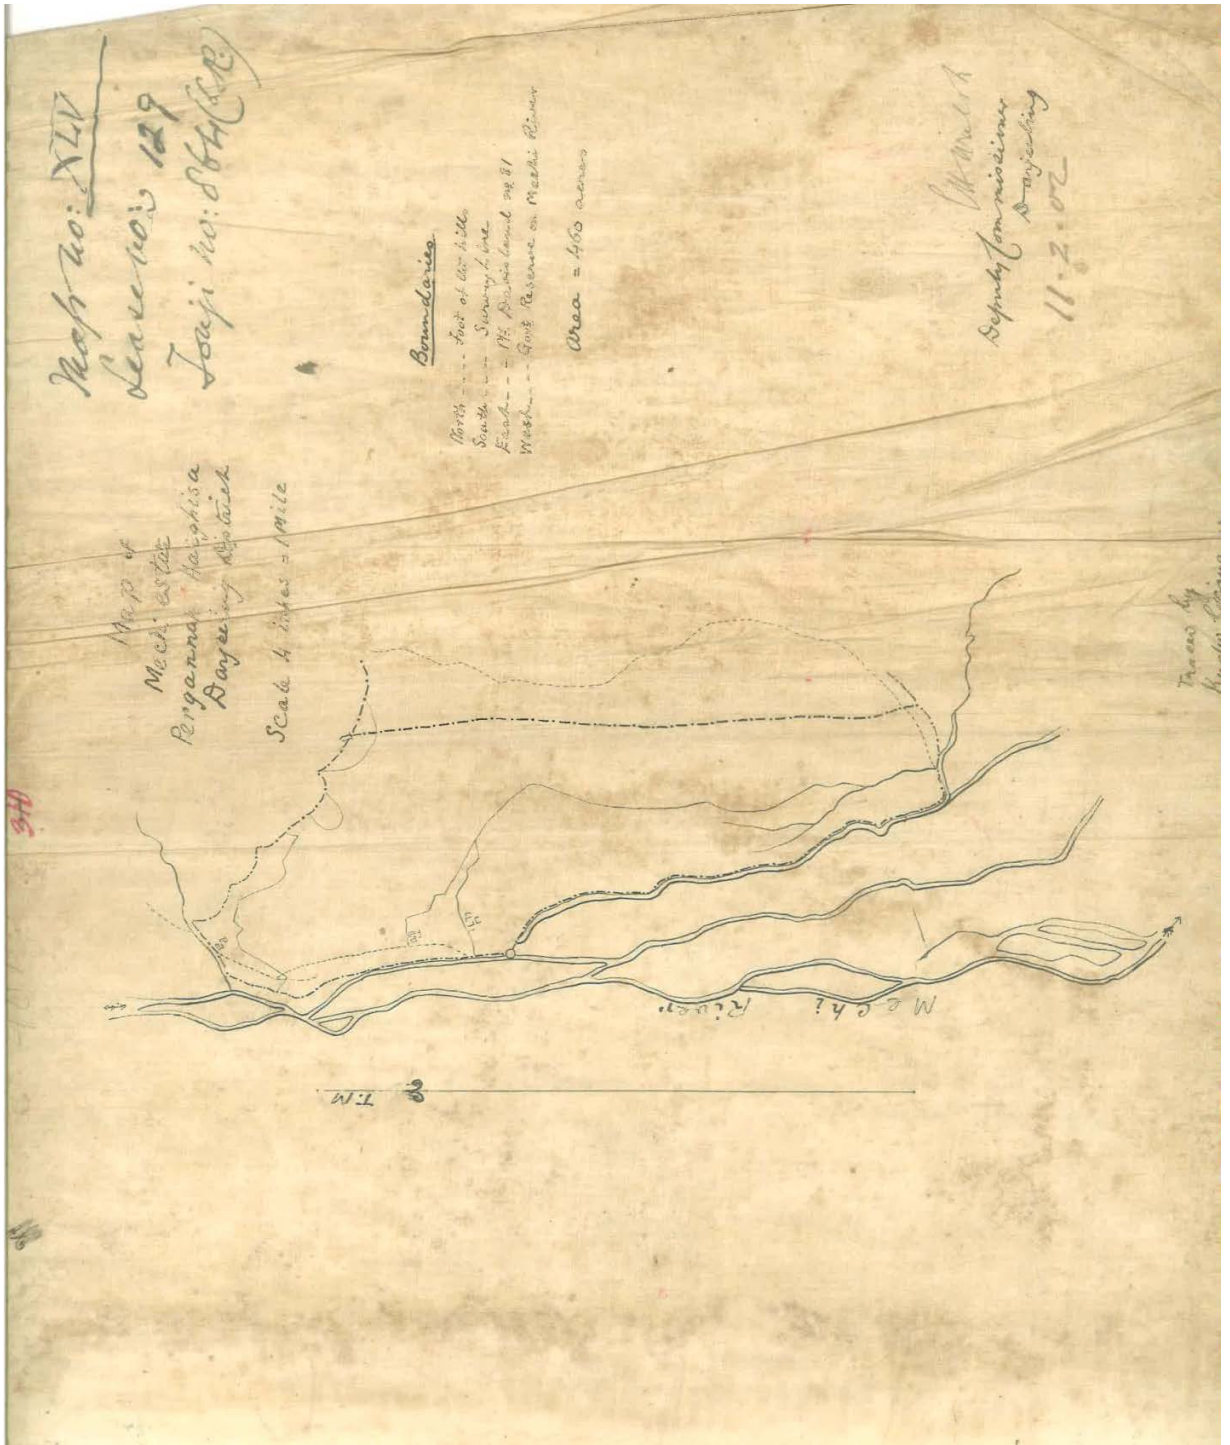 Map no: XLV
Lease no: 129
Touji no:
Map of
Mechi Estate
Pergannah
Darjeeling District
Scale 4 inches = 1 Mile
Boundaries
North ---- Foot of the hills
South ---- Survey line
East --- Mr Davis land no 81
West --- Govt Reserve on Mechi River
Area = 1460 acres
Deputy Commissioner
Darjeeling
11-2-02
Traced by
Mechi River
T.M